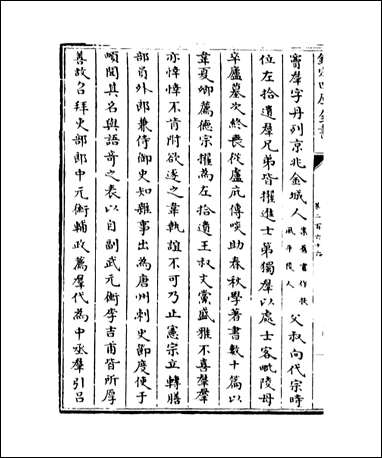 欽定四庫全書
竇羣字丹列京兆金城人案舊書作扶風平陵人父叔向代宗時
位左拾遺羣兄弟皆擢進士第獨羣以處士客毗陵母
卒廬墓次終喪從盧庇傳啖助春秋學著書數十篇以
韋夏卿薦德宗擢為左拾遺王叔文黨盛雅不喜羣羣
亦悻悻不肯附欲逐之韋執誼不可乃止憲宗立轉膳
部員外郎兼侍御史知雜事出為唐州刺史節度使于
頔聞其名與語奇之表以自副武元衡李吉甫皆所厚
善故召拜吏部郎中元衡輔政薦羣代為中丞羣引呂